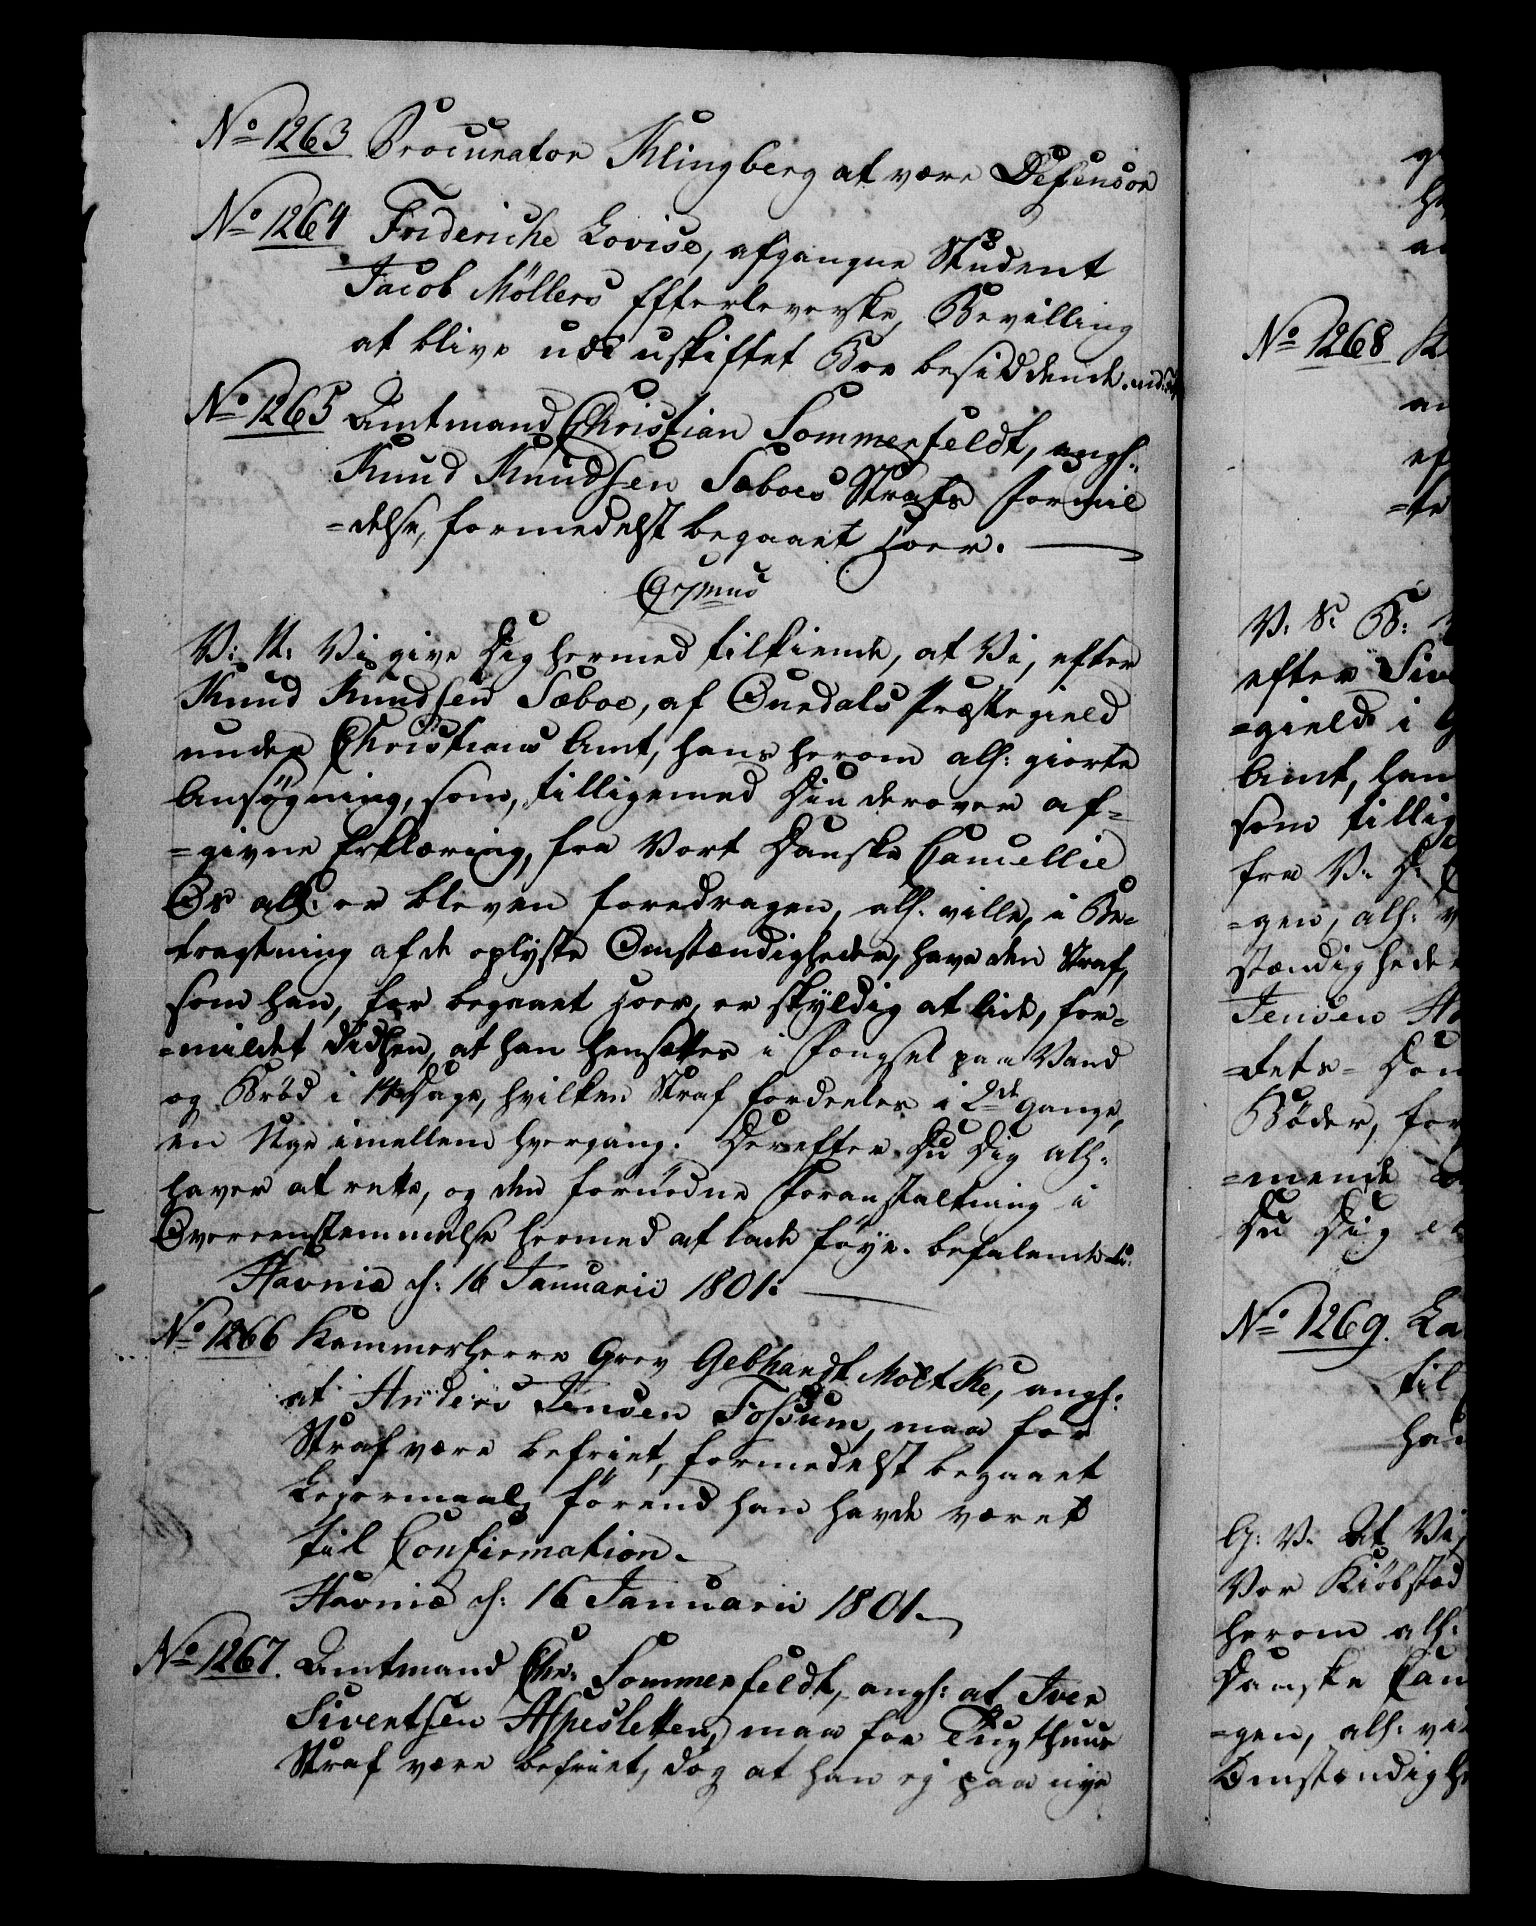 No 1263 Procurator Klingberg at være Defensor
No 1264 Frideriche Lovise, afgangne Student
Jacob Möllers Efterleverske, Bevilling
at blive udi uskiftet Boe besiddende.
No 1265 Amtmand Christian Sommerfeldt, angh:
Knud Knudsen Sæboes Strafs formil
=delse, formedelst begaaet Hoer.
C 7mus
V: N: Vi give Dig hermed tilkiende, at Vi, efter
Knud Knudsen Sæboe, af Qvedals Præstegield
under Christians Amt, hans herom alh: giorte
Ansøgning, som, tilligemed Din derover af=
=givne Erklæring, fra Vort Danske Cancellie
Os alh: er bleven foredragen, alh. ville, i Be-
tragtning af de oplyste Omstændigheder, have den Straf,
som han, for begaaet Hoer, er skyldig at lide, for=
=mildet didhen, at han hensættes i Fængsel paa Vand
og Bröd i 14 Dage, hvilken Straf fordeeles i 2de gange,
en Uge imellem hvergang. Derefter Du Dig alh:
haver at rette, og den fornødne Foranstaltning i
Overeensstemmelse hermed at lade føye. befalende
Havniæ d: 16 Januarii 1801.
No 1266 Kammerherre Grev Gebhardt Moltke, angh:
at Anders Jensen Fossum, maa for
Straf være befriet, formedelst begaaet
Leyermaal, förend han havde været
til Confirmation.
Havniæ d: 16 Januarii 1801.
No 1267. Amtmand Chr: Sommerfeldt, angh: at Iver
Sivertsen Aspesletten, maa for Tugthuus
Straf være befriet, dog at han ej paa nye
No 1268
V: S: B:
efter Siv
=gield i
Amt, han
som tillig
fra V: D:
=gen, alh:
stændighede
Jensen
=tets= Dom
Bøder, for
=mende
Du Dig
No 1269. La
til
han
G: V: At Vi,
Vor Kiöbstæd
herom alh:
Danske Can
=gen, alh: vi
Omstændighe